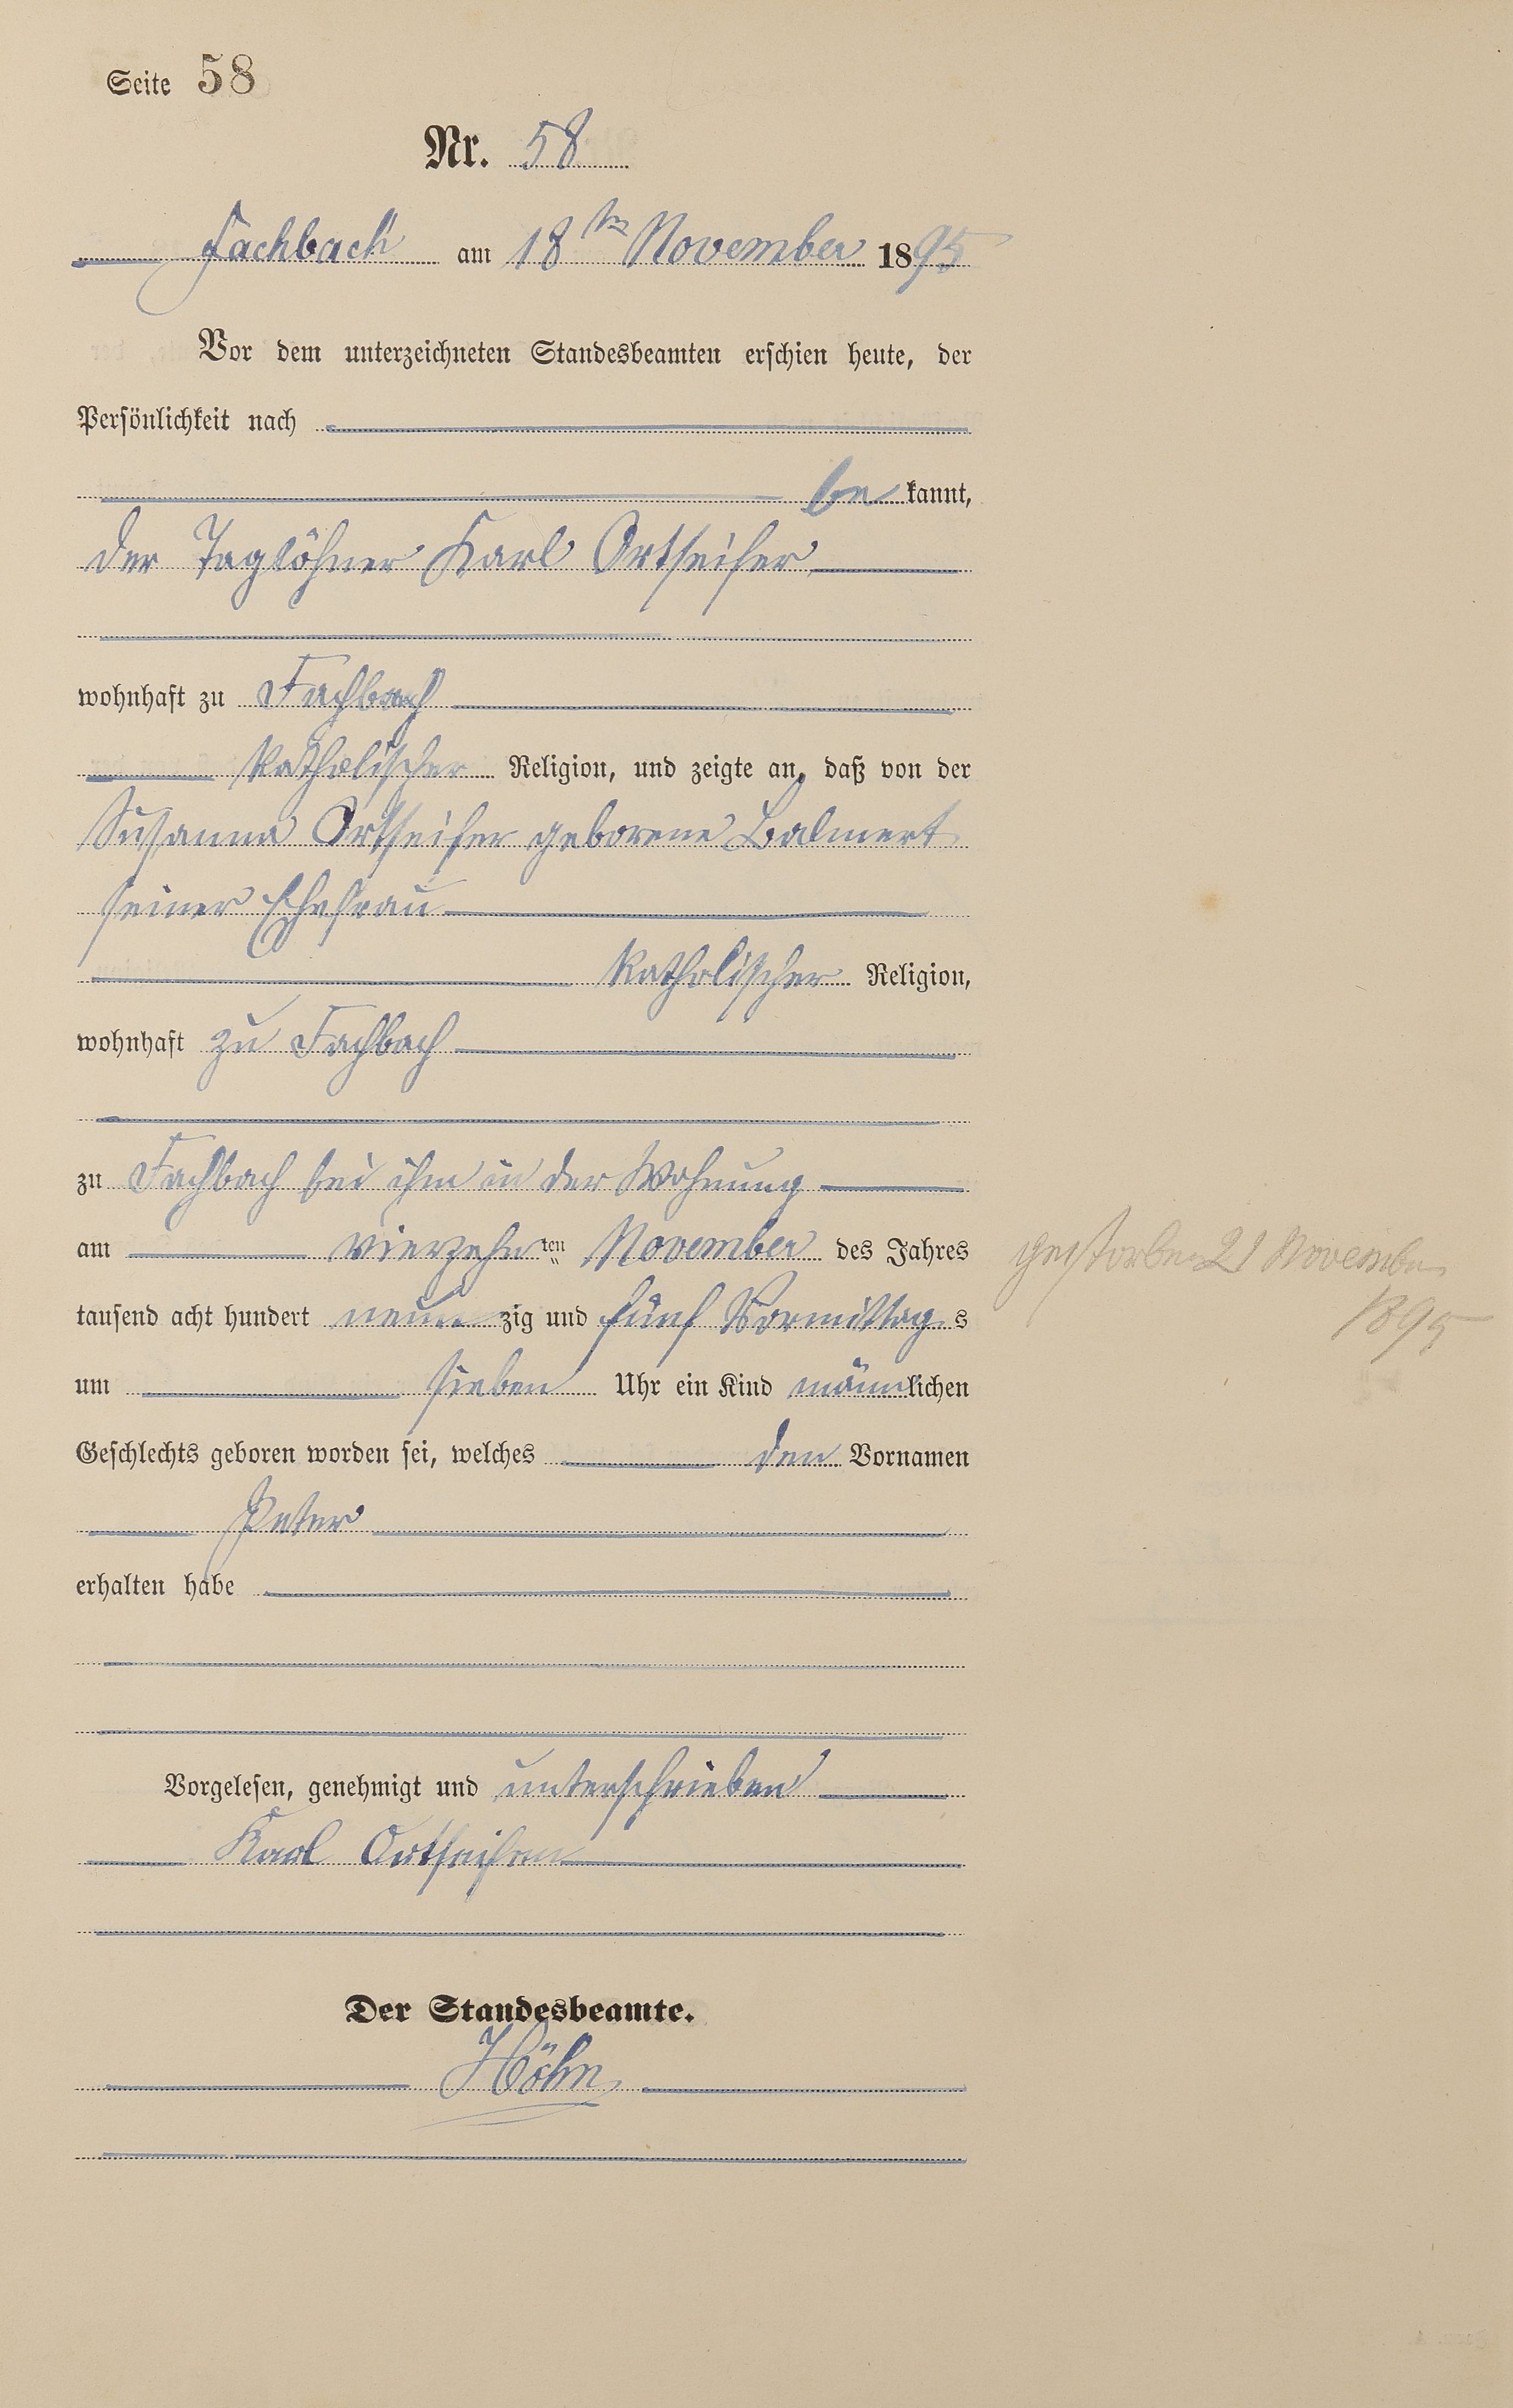 Seite 58
Nr. 58
Fachbach am 18ten November 1895
Vor dem unterzeichneten Standesbeamten erschien heute, der
Persönlichkeit nach
be kannt,
der Taglöhner Karl Ortseifer
wohnhaft zu Fachbach
katholischer Religion, und zeigte an, daß von der
Susanna Ortseifer geborene Balmert
seiner Ehefrau
katholischer Religion,
wohnhaft zu Fachbach
zu Fachbach bei ihm in der Wohnung
am vierzehnten November des Jahres
tausend acht hundert neunzig und fünf Vormittags
um sieben Uhr ein Kind männlichen
Geschlechts geboren worden sei, welches den Vornamen
Peter
erhalten habe
Vorgelesen, genehmigt und unterschrieben
Karl Ortseifer
Der Standesbeamte.
Höhn
gestorben 21 November
1895